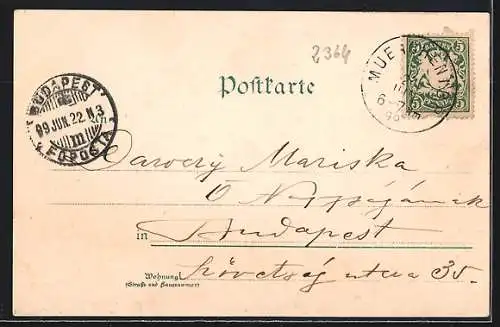 2364
Postkarte
5 5
MUE
BUDAPEST
99 JUN. 22 N 3
m
FŐPOSTA
An
Mariska
Ő Nagyságának
in Budapest
Wohnung
Szövetség utcza 35.
(Straße und Hausnummer)